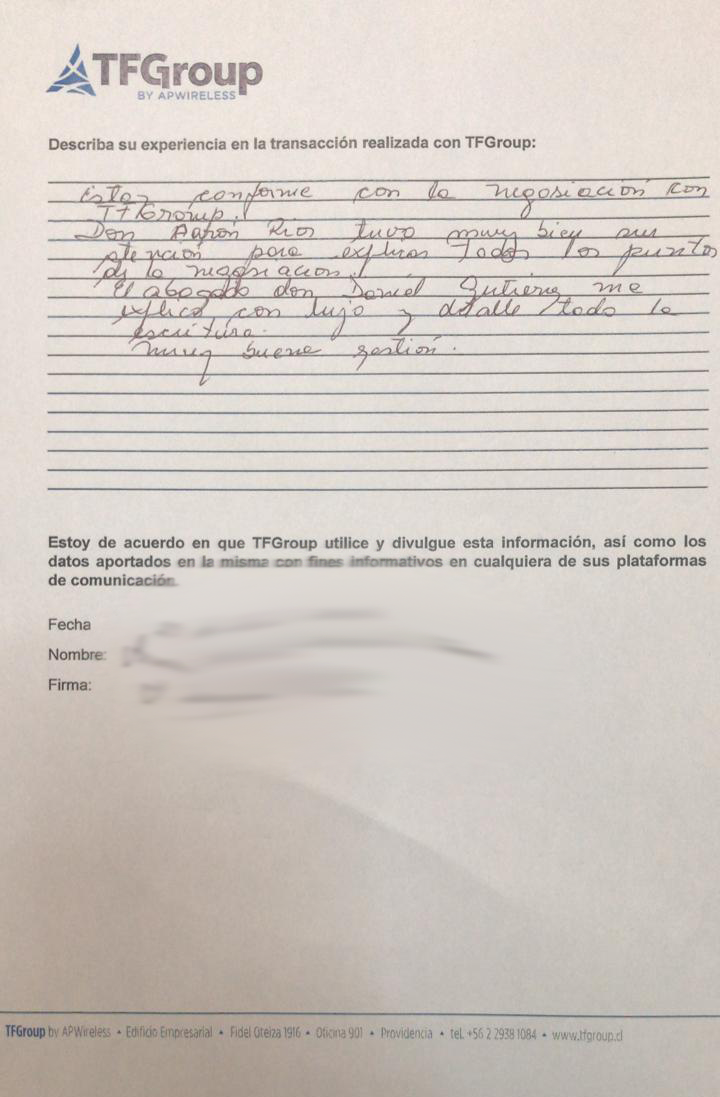 TFGroup
BY APWIRELESS
Describa su experiencia en la transacción realizada con TFGroup:
Estoy conforme con la negosiación con
TFGroup.
Don Aarón Rios tuvo muy bien su
atención para explicar todos los puntos
de la negosiacion.
El abogado don Daniel Gutierrez me
explico con lujo y detalle todo la
escritura.
muy buena gestión.
Estoy de acuerdo en que TFGroup utilice y divulgue esta información, así como los
datos aportados en la misma con fines informativos en cualquiera de sus plataformas
de comunicación
Fecha
Nombre:
Firma:
TFGroup by APWireless • Edificio Empresarial • Fidel Oteiza 1916 • Oficina 901 • Providencia • tel. +56 2 2938 1084 • www.tfgroup.cl